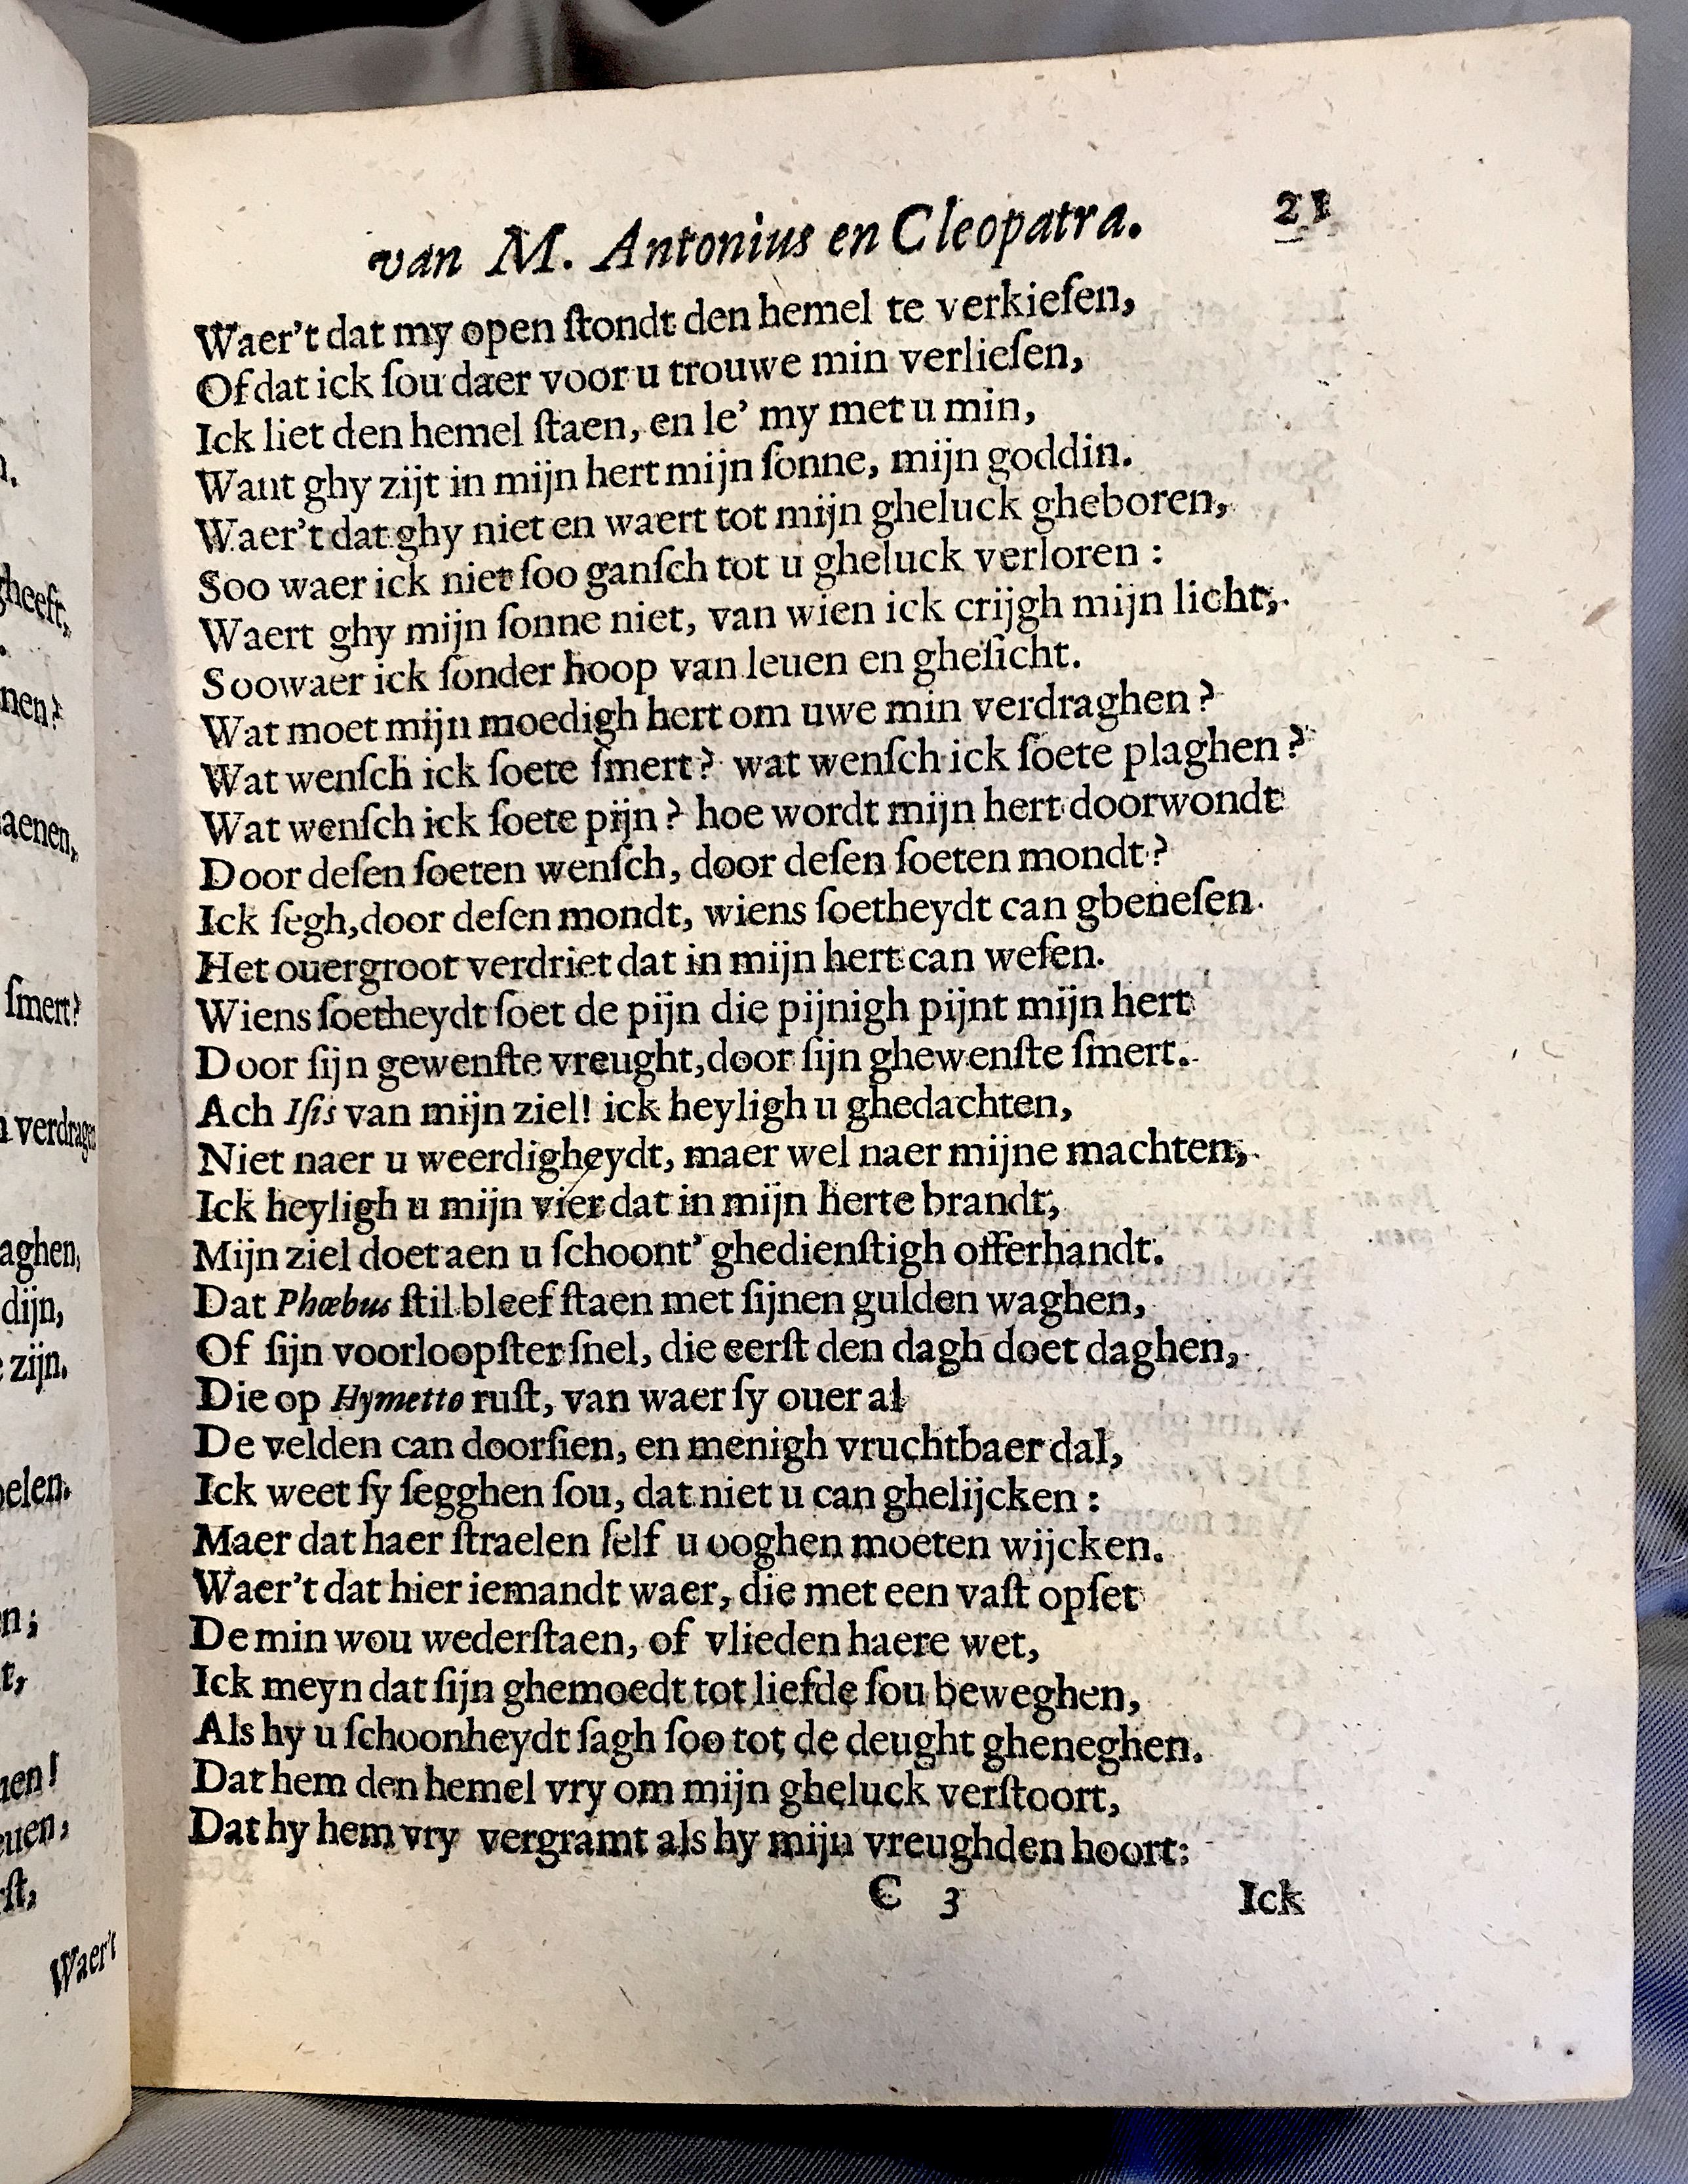 van M. Antonius en Cleopatra. 21
Waer't dat my open ſtondt den hemel te verkieſen,
Of dat ick ſou daer voor u trouwe min verlieſen,
Ick liet den hemel ſtaen, en le' my met u min,
Want ghy zijt in mijn hert mijn ſonne, mijn goddin.
Waer't dat ghy niet en waert tot mijn gheluck gheboren,
Soo waer ick niet ſoo ganſch tot u gheluck verloren :
Waert ghy mijn ſonne niet, van wien ick crijgh mijn licht,
Soo waer ick ſonder hoop van leuen en gheſicht.
Wat moet mijn moedigh hert om uwe min verdraghen?
Wat wenſch ick ſoete ſmert? wat wenſch ick ſoete plaghen?
Wat wenſch ick ſoete pijn? hoe wordt mijn hert doorwondt
Door deſen ſoeten wenſch, door deſen ſoeten mondt?
Ick ſegh, door deſen mondt, wiens ſoetheydt can gbeneſen
Het ouergroot verdriet dat in mijn hert can weſen.
Wiens ſoetheydt ſoet de pijn die pijnigh pijnt mijn hert
Door ſijn gewenſte vreught, door ſijn ghewenſte ſmert.
Ach Iſis van mijn ziel! ick heyligh u ghedachten,
Niet naer u weerdigheydt, maer wel naer mijne machten,
Ick heyligh u mijn vier dat in mijn herte brandt,
Mijn ziel doet aen u ſchoont' ghedienſtigh offerhandt.
Dat Phœbus ſtil bleef ſtaen met ſijnen gulden waghen,
Of ſijn voorloopſter ſnel, die eerſt den dagh doet daghen,
Die op Hymetto ruſt, van waer ſy ouer al
De velden can doorſien, en menigh vruchtbaer dal,
Ick weet ſy ſegghen ſou, dat niet u can ghelijcken :
Maer dat haer ſtraelen ſelf u ooghen moeten wijcken.
Waer't dat hier iemandt waer, die met een vaſt opſet
De min wou wederſtaen, of vlieden haere wet,
Ick meyn dat ſijn ghemoedt tot liefde ſou beweghen,
Als hy u ſchoonheydt ſagh ſoo tot de deught gheneghen.
Dat hem den hemel vry om mijn gheluck verſtoort,
Dat hy hem vry vergramt als hy mijn vreughden hoort:
C 3 Ick